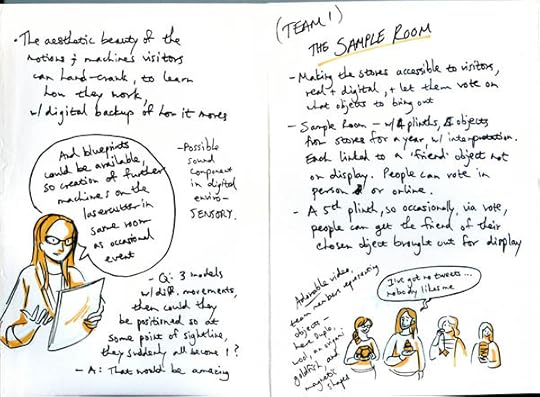 • The aesthetic beauty of the
motions & machines visitors
can hand-crank, to learn
how they work,
w/ digital backup of how it moves
And blueprints
could be available,
so creation of further
machines on the
lasercutter in
same room
as occasional
event
- Possible
sound
component
in digital
enviro -
SENSORY.
- Q: 3 models
w/ diff. movements,
then could they
be positioned so at
some point of sightline,
they suddenly all become 1?
- A: That would be amazing
(TEAM 1)
THE SAMPLE ROOM
- Making the stores accessible to visitors,
real + digital, + let them vote on
what objects to bring out
- Sample Room - w/ 4 plinths, 4 objects
from stores for a year, w/ interpretation.
Each linked to a 'friend' object not
on display. People can vote in
person or online.
- A 5th plinth, so occasionally, via vote,
people can get the friend of their
chosen object brought out for display
Adorable video,
team members representing
objects -
hen, Duplo,
wool, an origami
goldfish, and
magnetic
shapes
I've got no tweets...
nobody likes me